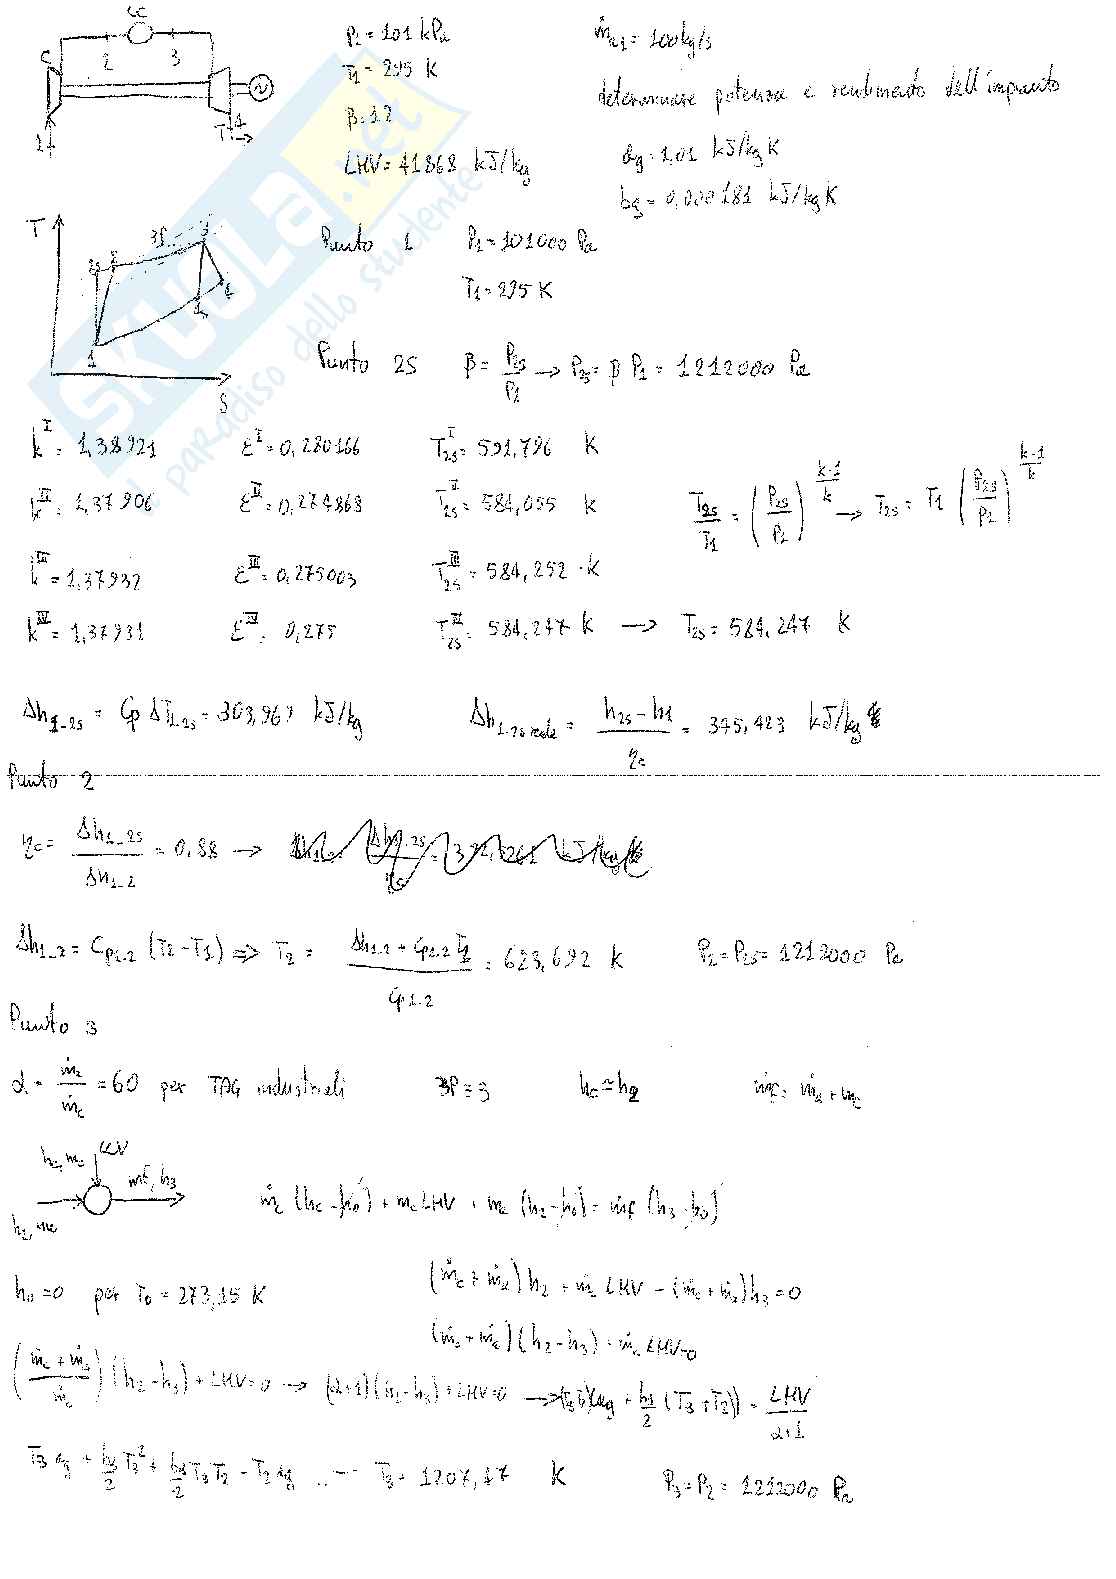 CC
C
2
3
T
4
1
P₁ = 101 kPa
T₁ = 295 K
β = 12
LHV = 41868 kJ/kg
ṁa₁ = 100 kg/s
determinare potenza e rendimento dell'impianto
ag = 1,01 kJ/kg K
bg = 0,000181 kJ/kg K
SKUOLA.net
il paradiso dello studente
T
S
Punto 1 P₁ = 101000 Pa
T₁ = 295 K
Punto 2S β = P2s/P1 → P2s = β P1 = 1212000 Pa
k^I = 1,38921 ε^I = 0,280166 T2s^I = 591,796 K
k^II = 1,37906 ε^II = 0,274868 T2s^II = 584,055 K
T2s/T1 = (P2s/P1)^((k-1)/k) → T2s = T1 (P2s/P1)^((k-1)/k)
k^III = 1,37932 ε^III = 0,275003 T2s^III = 584,252 K
k^IV = 1,37931 ε^IV = 0,275 T2s^IV = 584,247 K → T2s = 584,247 K
Δh1-2s = Cp ΔT1-2s = 303,969 kJ/kg Δh1-2s reale = (h2s - h1)/ηc = 345,423 kJ/kg
Punto 2
ηc = Δh1-2s/Δh1-2 = 0,88 →
Δh1-2 = Cp1-2 (T2-T1) ⇒ T2 = (Δh1-2 + Cp1-2 T1)/Cp1-2 = 623,692 K P2 = P2s = 1212000 Pa
Punto 3
α = ṁa/ṁc = 60 per TAG industriali ΔP = 3 hc ≃ h2 ṁf = ṁa + ṁc
LHV
hc, mc
mf, h3
h2, ma
ṁc (hc - h0) + mc LHV + ma (h2 - h0) = ṁf (h3 - h0)
h0 = 0 per T0 = 273,15 K
(ṁc + ṁa) h2 + ṁc LHV - (ṁc + ṁa) h3 = 0
(ṁc + ṁa)(h2 - h3) + ṁc LHV = 0
((ṁc + ṁa)/ṁc)(h2 - h3) + LHV = 0 → (α+1)(h2 - h3) + LHV = 0 → (T3-T2)(ag + bg/2 (T3+T2)) = LHV/(α+1)
T3 ag + bg/2 T3² + bg/2 T3T2 - T2 ag ... T3 = 1207,47 K P3 = P2 = 1212000 Pa